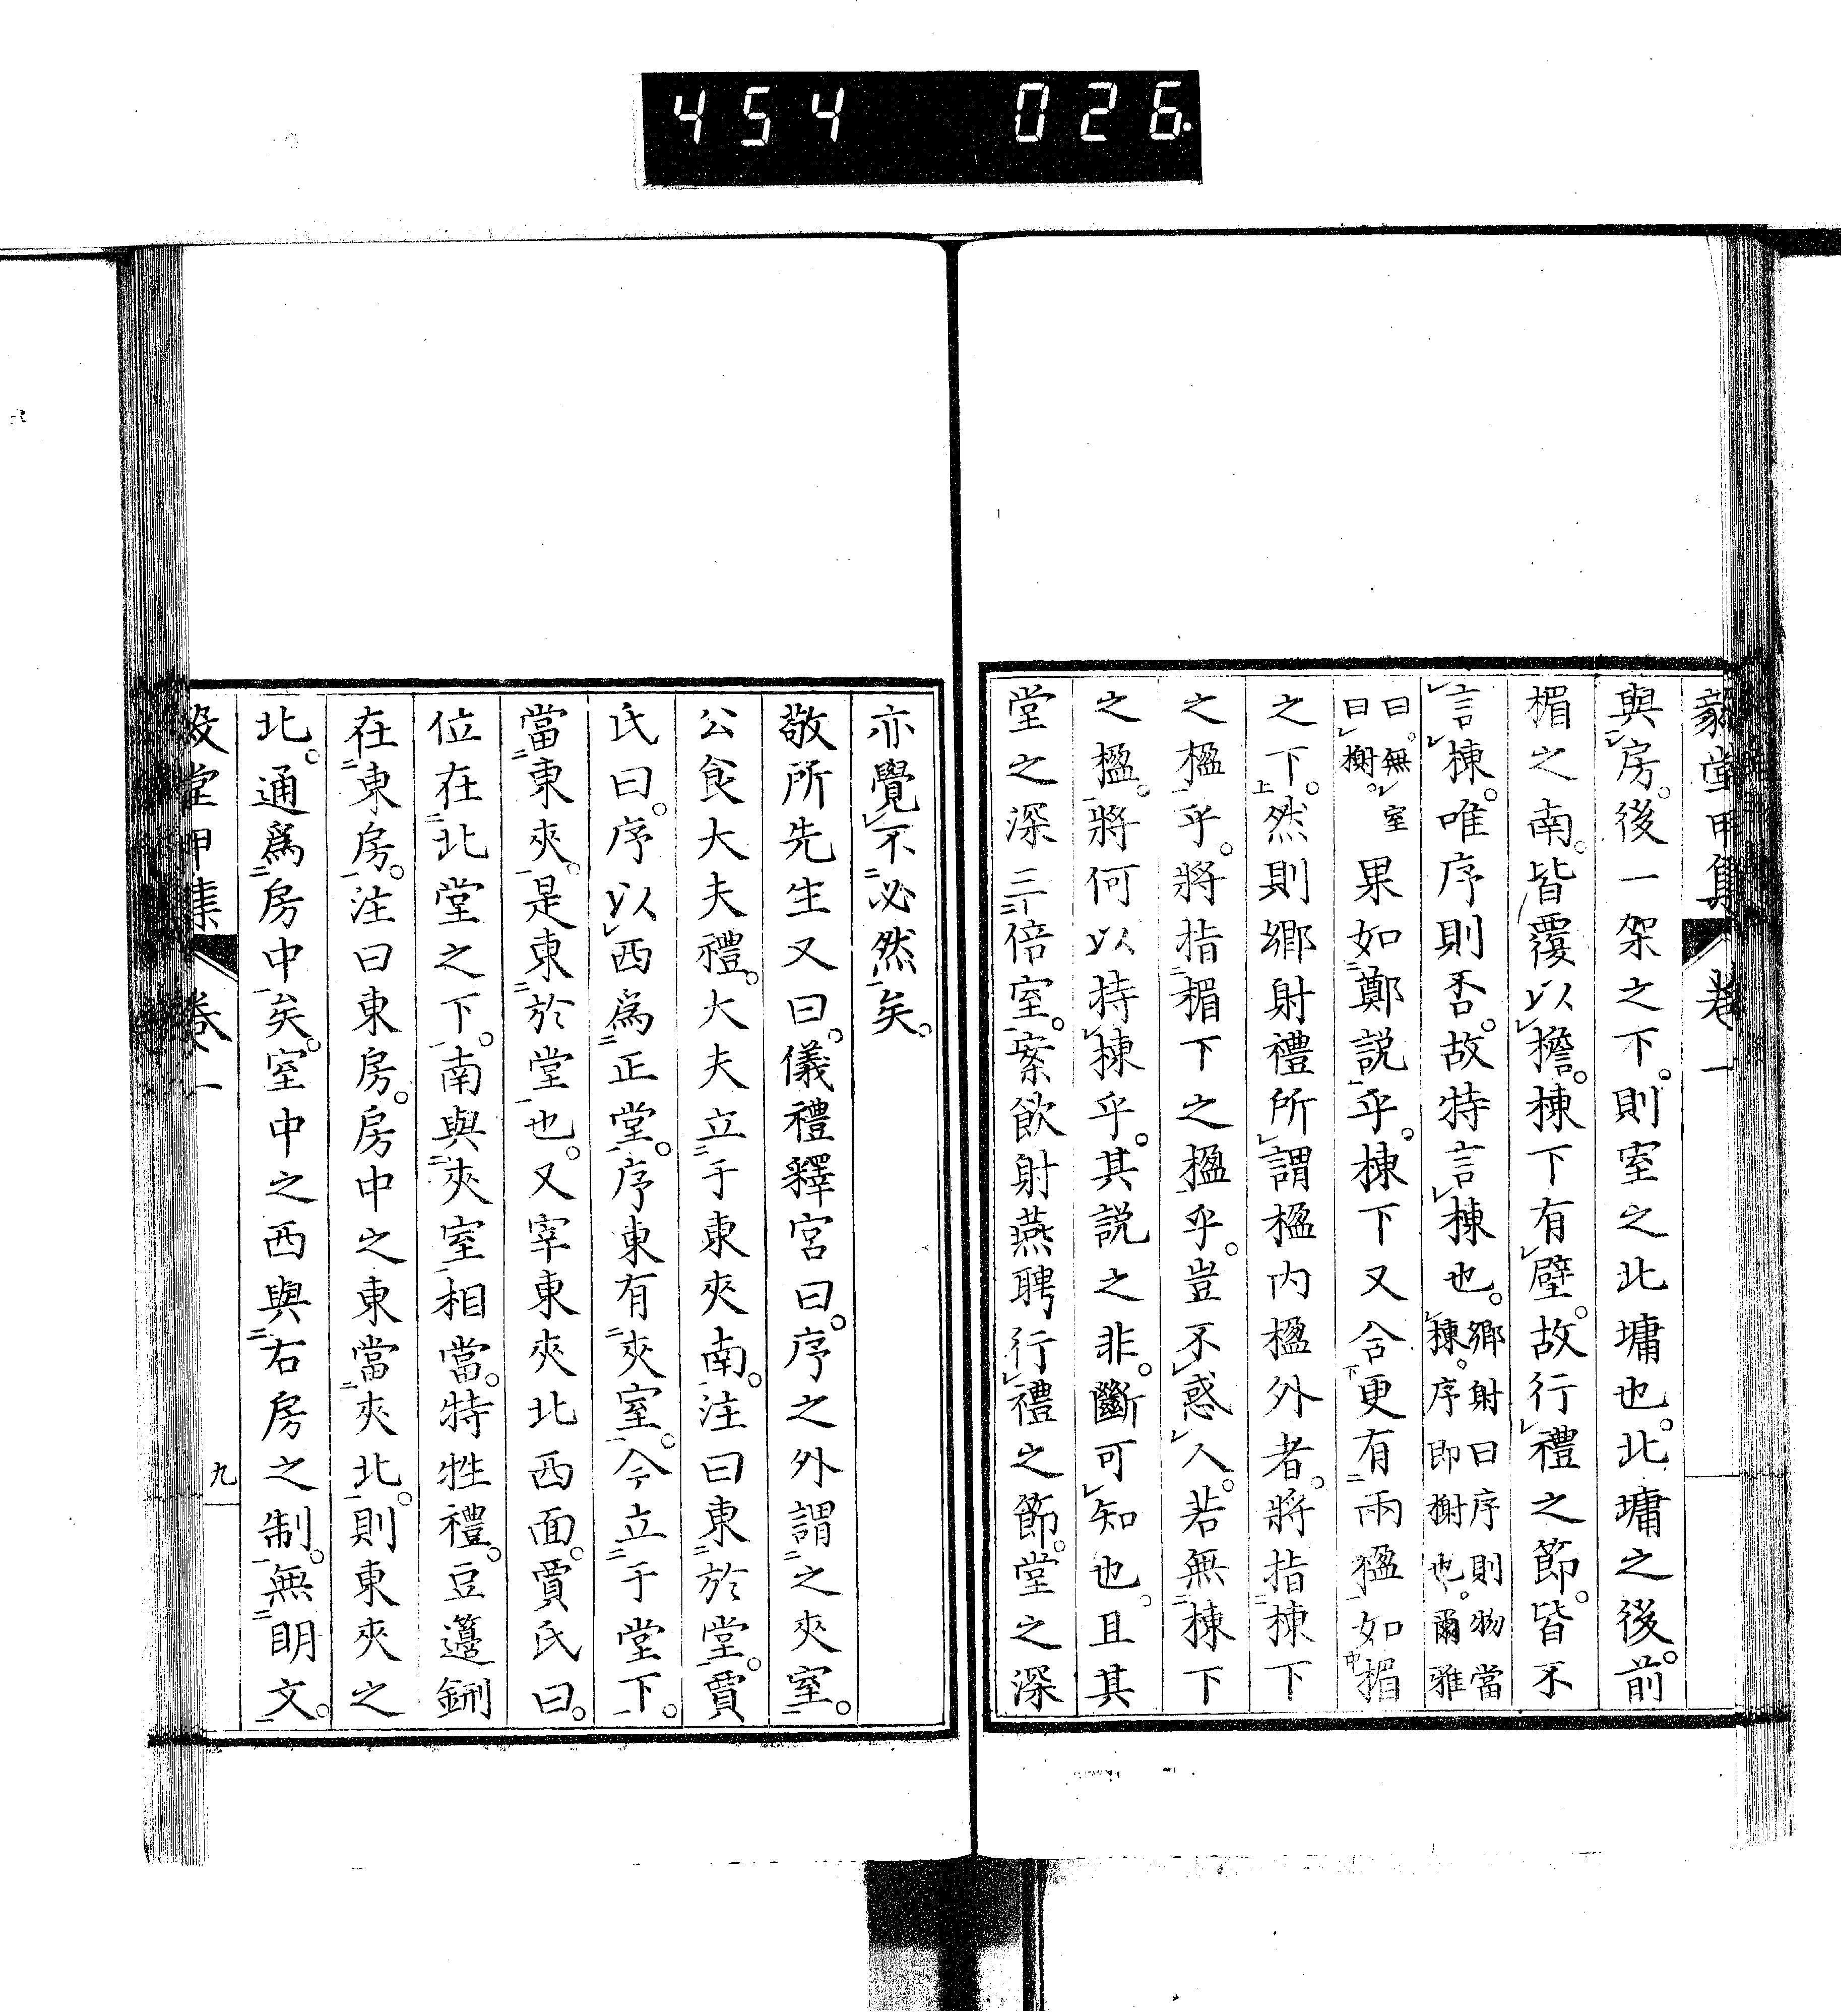 454 026.
毅堂甲集 卷一
與房。後一架之下。則室之北墉也。北墉之後。前
楣之南。皆覆以檐。棟下有壁。故行禮之節。皆不
言棟。唯序則否。故特言棟也。鄉射曰序則物當棟。序即榭也。爾雅
曰。無室曰榭。果如鄭説乎。棟下又合更有兩楹如楣
之下。然則鄉射禮所謂楹内楹外者。將指棟下
之楹乎。將指楣下之楹乎。豈不惑人。若無棟下
之楹。將何以持棟乎。其説之非。斷可知也。且其
堂之深三倍室。案飲射燕聘行禮之節。堂之深
亦覺不必然矣。
敬所先生又曰。儀禮釋宮曰。序之外謂之夾室。
公食大夫禮。大夫立于東夾南。注曰東於堂。賈
氏曰。序以西爲正堂。序東有夾室。今立于堂下。
當東夾。是東於堂也。又宰東夾北西面。賈氏曰。
位在北堂之下。南與夾室相當。特牲禮。豆籩鉶
在東房。注曰東房。房中之東當夾北。則東夾之
北。通爲房中矣。室中之西與右房之制。無明文。
毅堂甲集 卷一 九